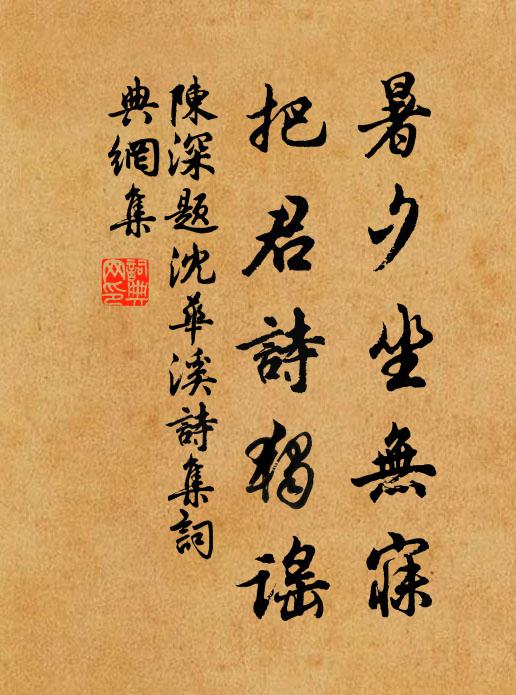 暑夕坐無寐
把君詩獨謡
陳深題沈華溪詩集詞
典網集
詞典
网印